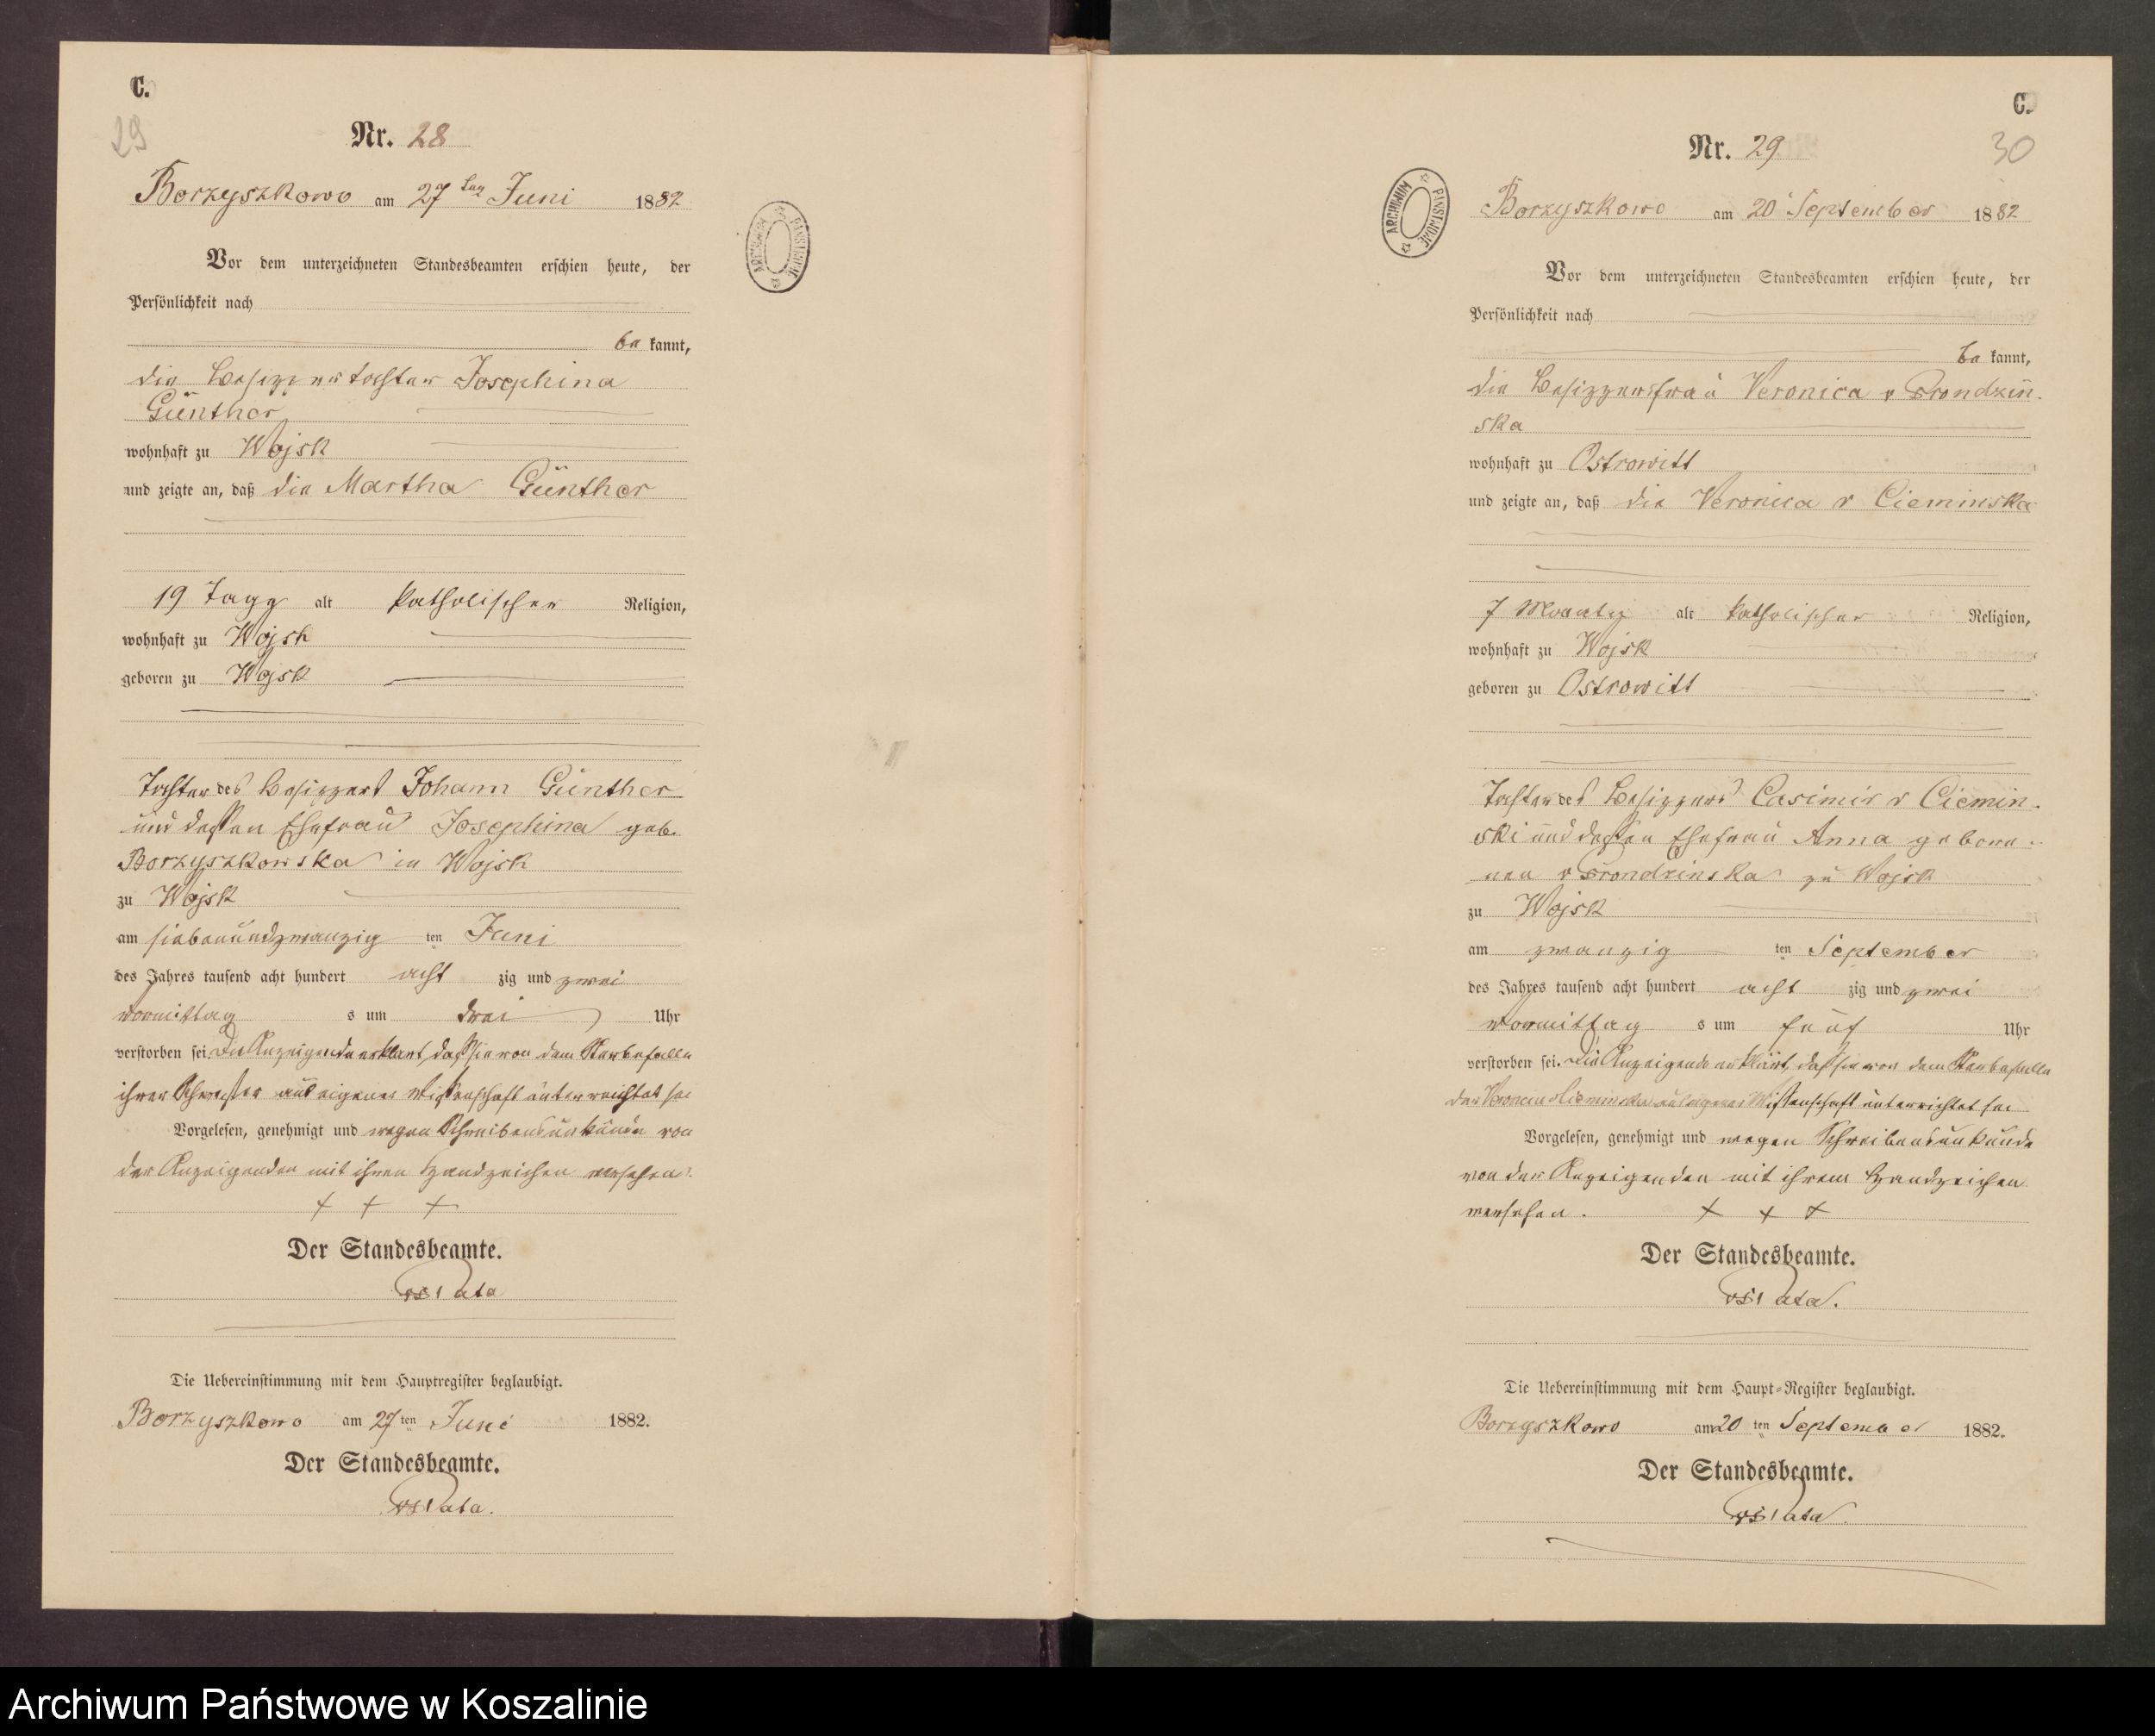 C.
29
Nr. 28
Borzyszkowo am 27ten Juni 1882
Vor dem unterzeichneten Standesbeamten erschien heute, der
Persönlichkeit nach
be kannt,
die Besitzertochter Josephina
Günther
wohnhaft zu Wojsk
und zeigte an, daß die Martha Günther
19 Tage alt katholischer Religion,
wohnhaft zu Wojsk
geboren zu Wojsk
Tochter des Besitzers Johann Günther
und dessen Ehefrau Josephina geb.
Borzyszkowska in Wojsk
zu Wojsk
am siebenundzwanzig ten Juni
des Jahres tausend acht hundert acht zig und zwei
vormittag s um drei Uhr
verstorben sei. Die Anzeigende erklärt, daß sie von dem Sterbefalle
ihrer Schwester aus eigener Wissenschaft unterrichtet sei
Vorgelesen, genehmigt und wegen Schreibensunkunde von
der Anzeigenden mit ihren Handzeichen versehen.
+ + +
Der Standesbeamte.
Die Uebereinstimmung mit dem Hauptregister beglaubigt.
Borzyszkowo am 27ten Juni 1882.
Der Standesbeamte.
ARCHIWUM PAŃSTWOWE
C.
30
Nr. 29
ARCHIWUM PAŃSTWOWE
Borzyszkowo am 20 September 1882
Vor dem unterzeichneten Standesbeamten erschien heute, der
Persönlichkeit nach
be kannt,
die Besitzersfrau Veronica v Prondzin-
ska
wohnhaft zu Ostrowitt
und zeigte an, daß die Veronica v Cieminska
7 Monate alt katholischer Religion,
wohnhaft zu Wojsk
geboren zu Ostrowitt
Tochter des Besitzers Casimir v Ciemin-
ski und dessen Ehefrau Anna gebore-
nen v Prondzinska zu Wojsk
zu Wojsk
am zwanzig ten September
des Jahres tausend acht hundert acht zig und zwei
vormittag s um fünf Uhr
verstorben sei. Die Anzeigende erklärt, daß sie von dem Sterbefalle
der Veronica Cieminska aus eigener Wissenschaft unterrichtet sei
Vorgelesen, genehmigt und wegen Schreibensunkunde
von der Anzeigenden mit ihrem Handzeichen
versehen. + + +
Der Standesbeamte.
Die Uebereinstimmung mit dem Haupt-Register beglaubigt.
Borzyszkowo am 20 ten September 1882.
Der Standesbeamte.
Archiwum Państwowe w Koszalinie